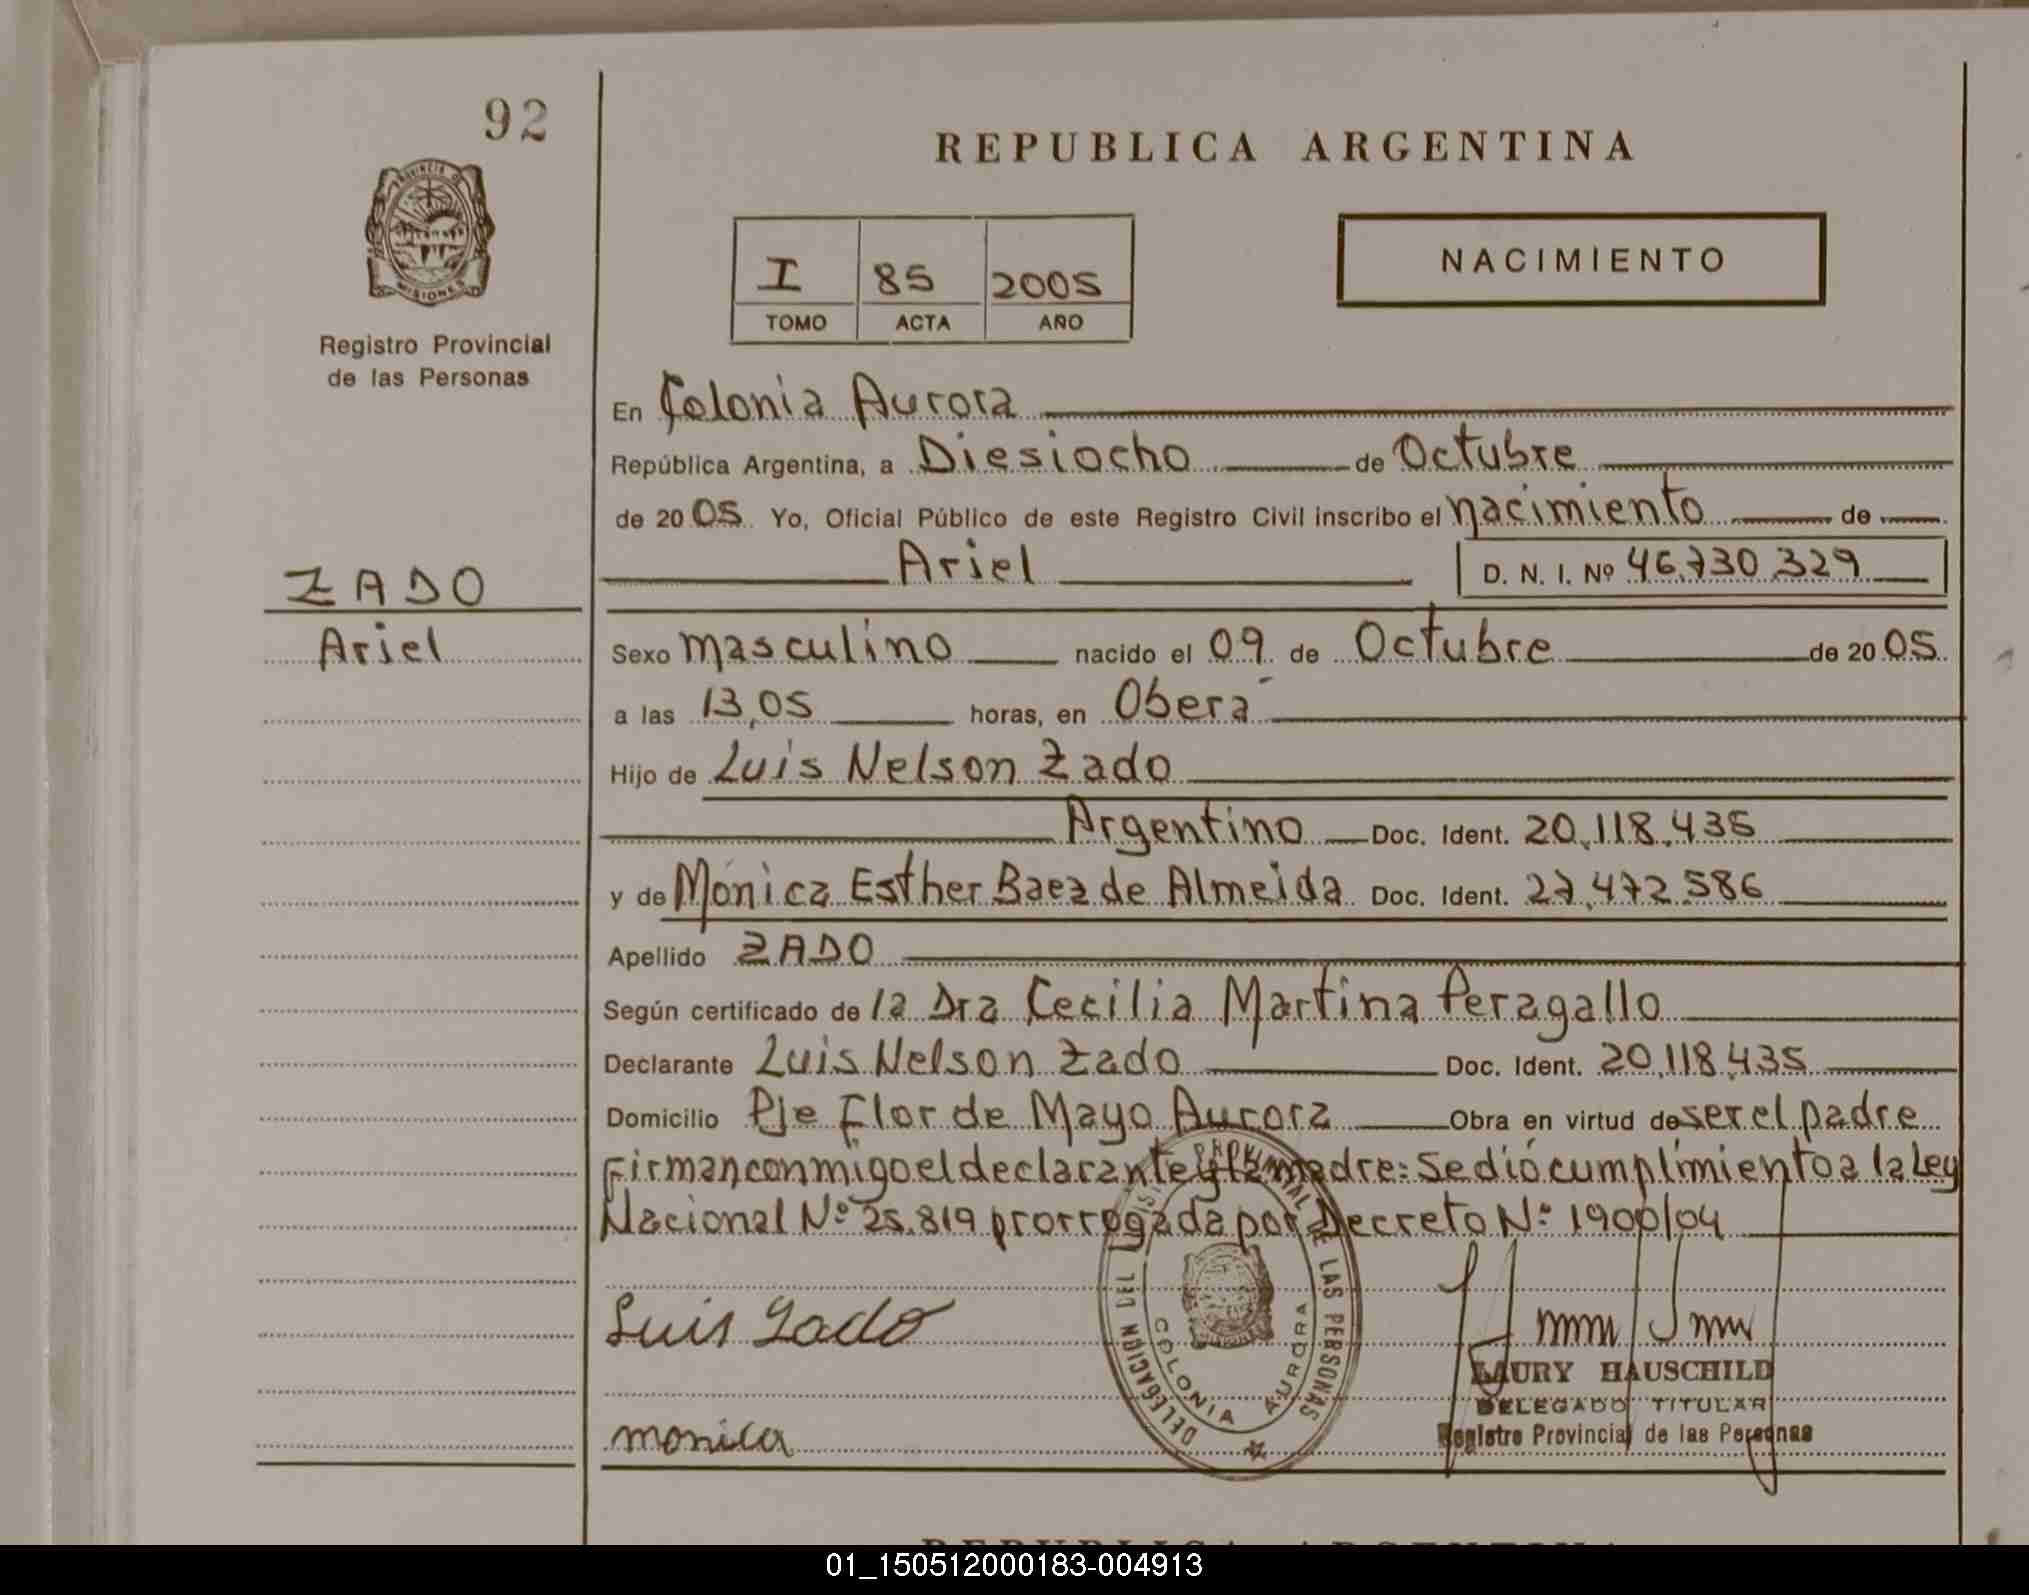 92
REPUBLICA ARGENTINA
PROVINCIA DE
MISIONES
Registro Provincial
de las Personas
I 85 2005
TOMO ACTA AÑO
NACIMIENTO
En Colonia Aurora
República Argentina, a Diesiocho de Octubre
de 2005 Yo, Oficial Público de este Registro Civil inscribo el nacimiento de
Ariel D. N. I. Nº 46.730.329
ZADO
Ariel
Sexo masculino nacido el 09 de Octubre de 2005
a las 13,05 horas, en Oberá
Hijo de Luis Nelson Zado
Argentino Doc. Ident. 20.118.435
y de Mónica Esther Baez de Almeida Doc. Ident. 27.472.586
Apellido ZADO
Según certificado de la Dra Cecilia Martina Peragallo
Declarante Luis Nelson Zado Doc. Ident. 20.118.435
Domicilio Pje Flor de Mayo Aurora Obra en virtud de ser el padre
Firman conmigo el declarante y la madre: Se dió cumplimiento a la Ley
Nacional Nº 25.819 prorrogada por Decreto Nº 1900/04
DELEGACIÓN DEL REGISTRO PROVINCIAL DE LAS PERSONAS
COLONIA AURORA
Luis Zado
LAURY HAUSCHILD
DELEGADO TITULAR
Registro Provincial de las Personas
monica
REPUBLICA ARGENTINA
01_150512000183-004913